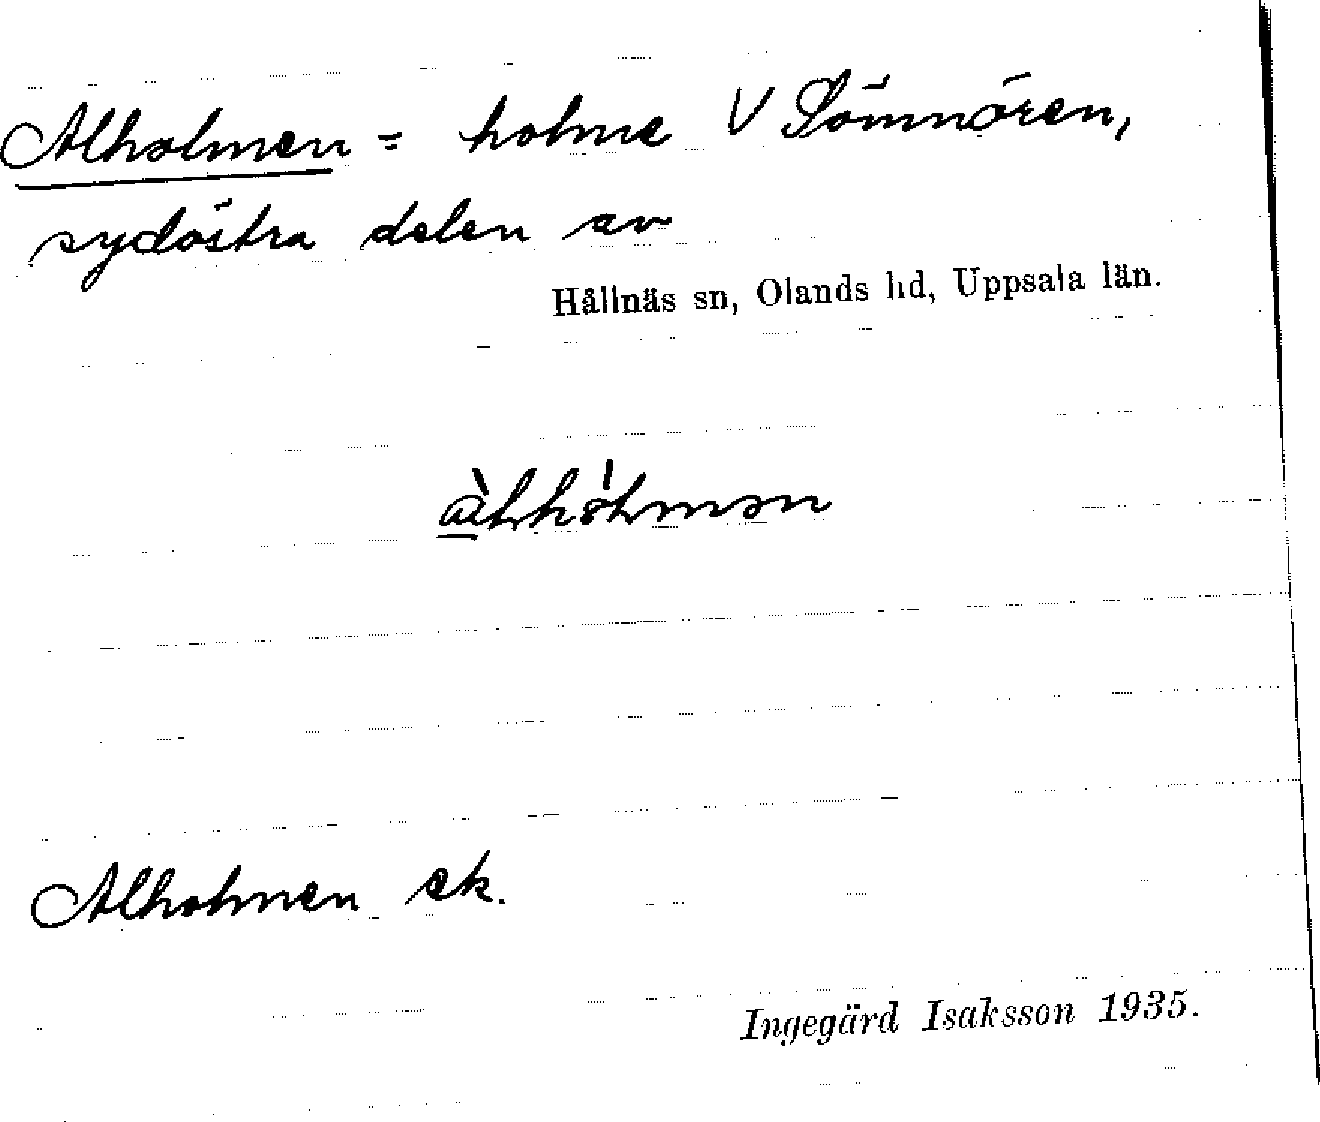 Alholmen = holme V Sömnören,
sydöstra delen av
Hållnäs sn, Olands hd, Uppsala län.
Alholmen ek.
Ingegärd Isaksson 1935.